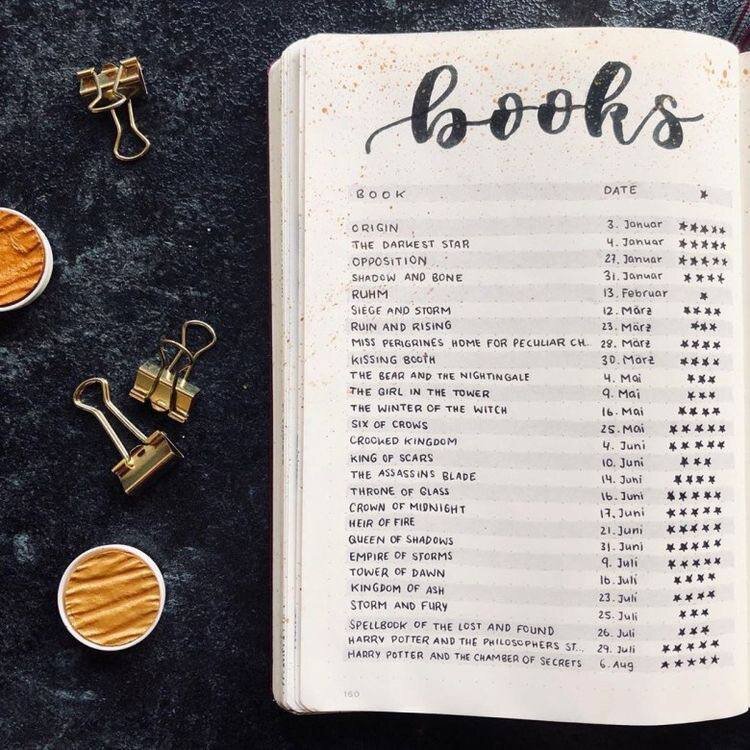 books
BOOK DATE ★
ORIGIN 3. Januar ★★★★★
THE DARKEST STAR 4. Januar ★★★★★
OPPOSITION 27. Januar ★★★★★
SHADOW AND BONE 31. Januar ★★★★
RUHM 13. Februar ★
SIEGE AND STORM 12. März ★★★★
RUIN AND RISING 23. März ★★★
MISS PERIGRINES HOME FOR PECULIAR CH... 28. März ★★★★
KISSING BOOTH 30. März ★★★★
THE BEAR AND THE NIGHTINGALE 4. Mai ★★★
THE GIRL IN THE TOWER 9. Mai ★★★
THE WINTER OF THE WITCH 16. Mai ★★★★
SIX OF CROWS 25. Mai ★★★★★
CROOKED KINGDOM 4. Juni ★★★★★
KING OF SCARS 10. Juni ★★★
THE ASSASSINS BLADE 14. Juni ★★★★
THRONE OF GLASS 16. Juni ★★★★★
CROWN OF MIDNIGHT 17. Juni ★★★★★
HEIR OF FIRE 21. Juni ★★★★★
QUEEN OF SHADOWS 31. Juni ★★★★★
EMPIRE OF STORMS 9. Juli ★★★★★
TOWER OF DAWN 16. Juli ★★★★
KINGDOM OF ASH 23. Juli ★★★★
STORM AND FURY 25. Juli ★★★
SPELLBOOK OF THE LOST AND FOUND 26. Juli ★★★
HARRY POTTER AND THE PHILOSOPHERS ST... 29. Juli ★★★★★
HARRY POTTER AND THE CHAMBER OF SECRETS 6. Aug ★★★★★
160